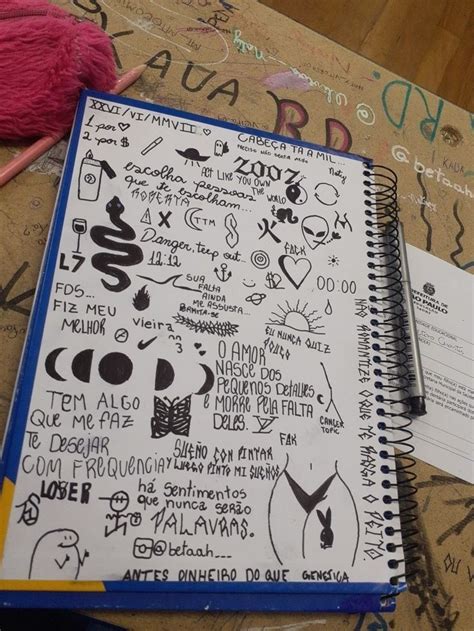 XXVI/VI/MMVII
1 por ♡
2 por $
CABEÇA TA A MIL...
PRECISO NÃO SENTIR NADA
2007
ACT LIKE YOU OWN
THE WORLD
Naty
escolha pessoas
que te escolham...
ROBERTA
CTTM
Danger, keep out...
12:12
FUCK
00:00
L7
SUA
FALTA
AINDA
ME ASSUSTA...
FDS...
FIZ MEU
MELHOR
Vieira
EU NUNCA QUIZ
POUCO
O AMOR
NASCE DOS
PEQUENOS DETALHES
E MORRE PELA FALTA
DELES.
TEM ALGO
QUE ME FAZ
TE DESEJAR
COM FREQUENCIA
CANCER
TOPIC
SUEÑO CON PINTAR
Y LUEGO PINTO MI SUEÑOS
LOSER
há sentimentos
que nunca serão
PALAVRAS.
@betaah___
ANTES DINHEIRO DO QUE
NÃO ROMANTIZE O QUE TE RASGA O PEITO
KAUA
RD
@betaah
PREFEITURA DE
SÃO PAULO